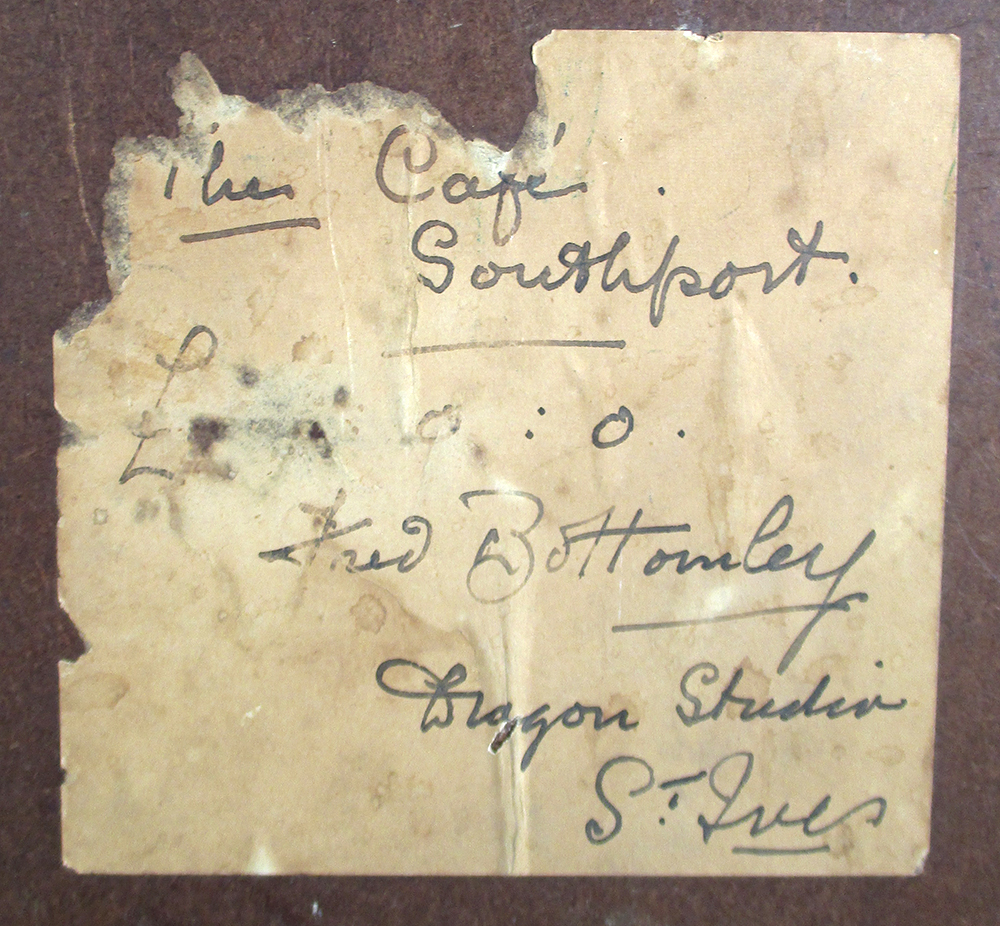 The Café.
Southport.
£
£ 0 : 0.
Fred Bottomley
Dragon Studio
St. Ives